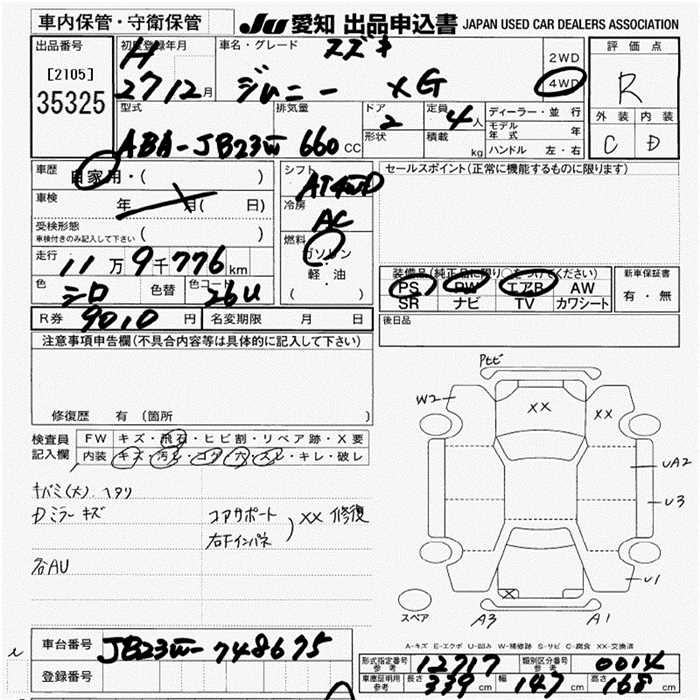 車内保管・守衛保管 JU 愛知 出品申込書 JAPAN USED CAR DEALERS ASSOCIATION
出品番号 初度登録年月 車名・グレード スズキ 2WD 評価点
[2105] H
35325 27 12月 ジムニー XG 4WD R
型式 排気量 ドア 2 定員 4人 ディーラー・並行 外装 内装
ABA-JB23W 660cc 形状 積載 kg モデル年式 年 C D
ハンドル 左・右
車歴 自家用・( ) シフト AT4WD セールスポイント(正常に機能するものに限ります)
車検 年 月( 日) 冷房 AC
受検形態
車検付きのみ記入して下さい ( ) 燃料 ガソリン
走行 11万9千776km 軽・油 装備品(純正品に限り○をつけてください) 新車保証書
色 シロ 色替 色コード 26U ( ) PS PW エアB AW 有・無
SR ナビ TV カワシート
R券 9010円 名変期限 月 日 後日品
注意事項申告欄(不具合内容等は具体的に記入して下さい)
修復歴 有(箇所
検査員 FW キズ・飛石・ヒビ割・リペア跡・X要
記入欄 内装 キズ・汚レ・コゲ・穴・スレ・キレ・破レ
W2 XX XX
UA2
キバミ(大)
Dミラー キズ コアサポート XX 修復 U3
右Fインパネ
各AU X U1
スペア A3 A1
A-キズ E-エクボ U-凹み W-補修跡 S-サビ C-腐食 XX-交換済
車台番号 JB23W-748675 形式指定番号 参考 12717 類別区分番号 参考 0014
登録番号 車庫証明用 参考 長さ 339cm 幅 147cm 高さ 168cm